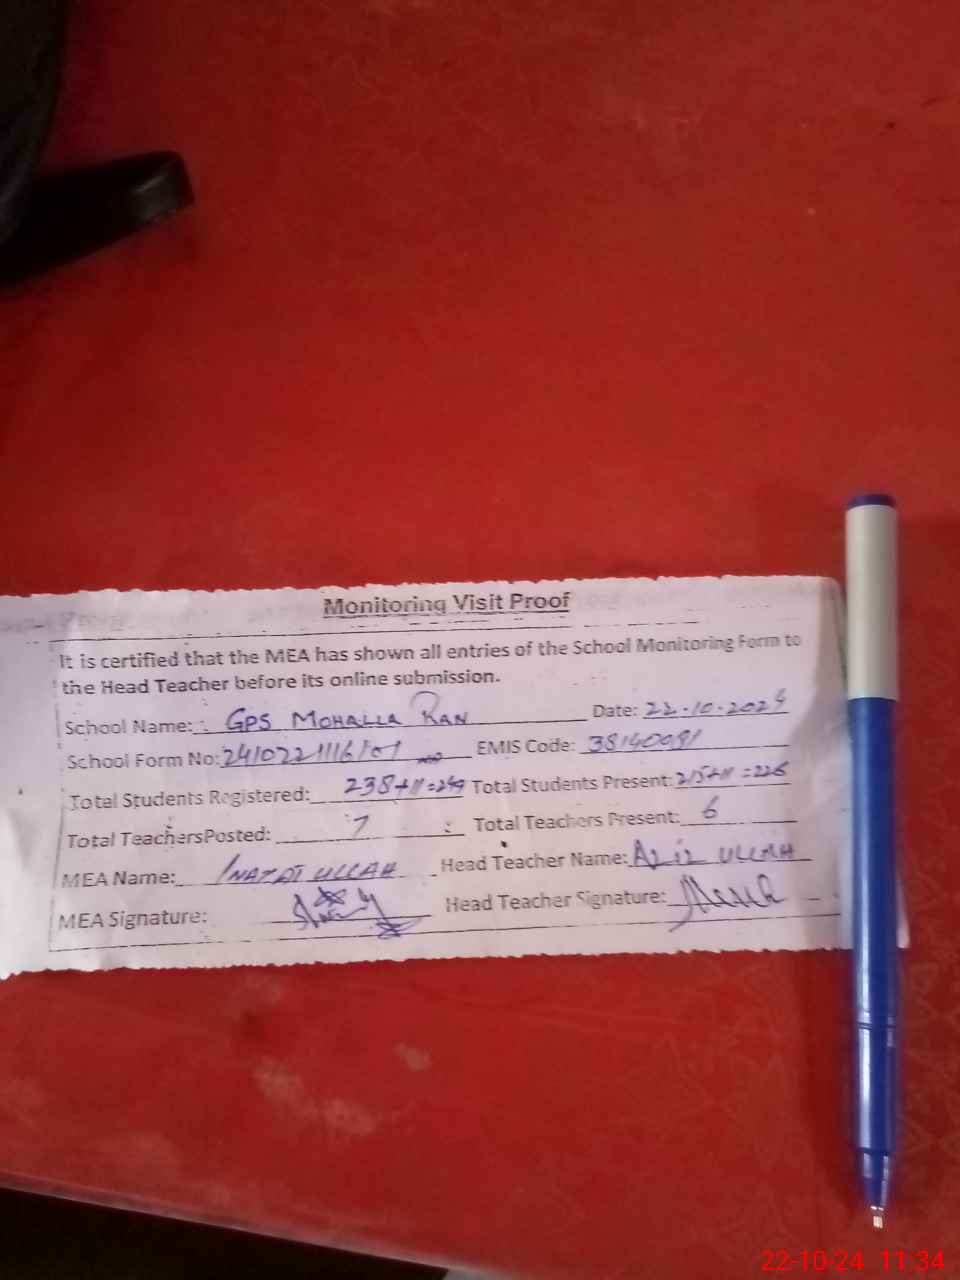 Monitoring Visit Proof
It is certified that the MEA has shown all entries of the School Monitoring Form to
the Head Teacher before its online submission.
School Name: GPS MOHALLA RAN Date: 22-10-2024
School Form No: EMIS Code:
Total Students Registered: 238+11=249 Total Students Present: 215+11=226
Total TeachersPosted: 7 Total Teachers Present: 6
MEA Name: INAYAT ULLAH Head Teacher Name: AZIZ ULLAH
MEA Signature: Head Teacher Signature:
22-10-24 11:34